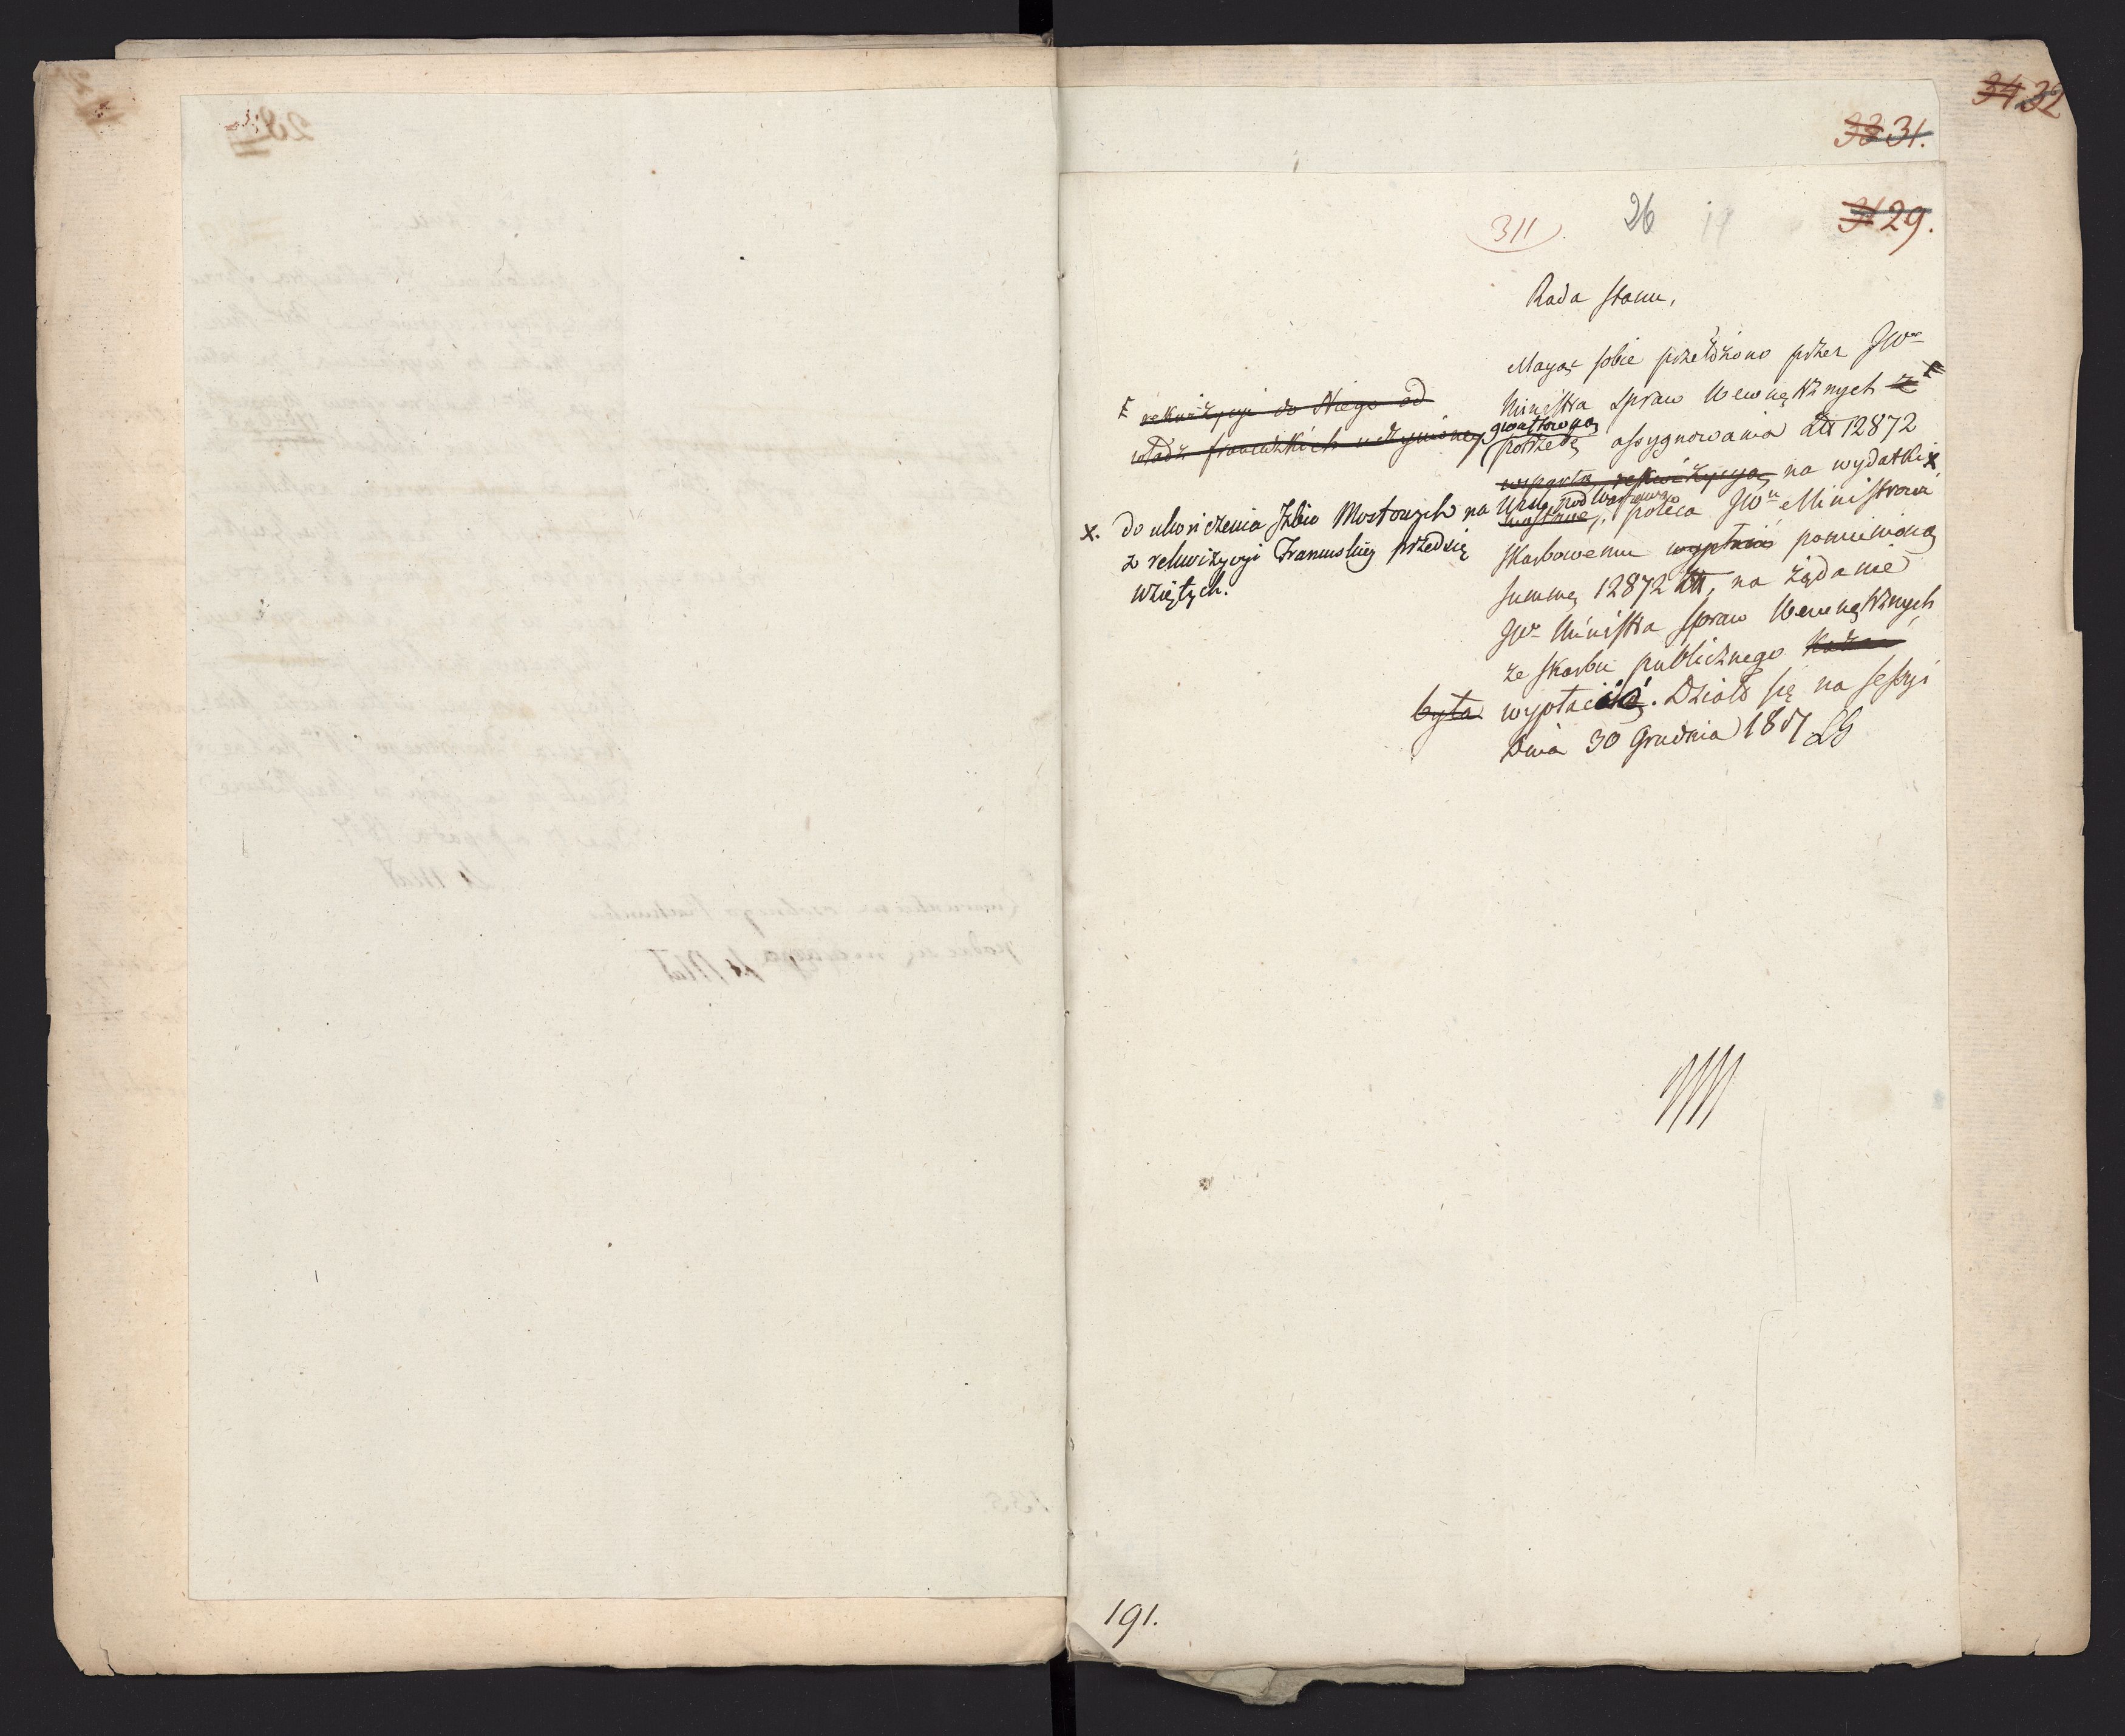 34 32
33 31.
311
26
31 29.
Rada Stanu,
Maiąc sobie przełożono przez JWo
Ministra Spraw Wewnętrznych z
gwałtowną
potrzebę assygnowania Zł 12872
wspartą rekwizycyą na wydatki x
pod Warszawą
poleca JWu Ministrowi
Skarbowemu wypłacić pomienioną
summę 12872 Zł, na żądanie
JWo Ministra Spraw Wewnętrznych,
ze Skarbu publicznego
była wypłacić. Działo się na sessyi
Dnia 30 Grudnia 1807
E rekwizycyi do Niego od
władz francuzkich uczynioney
x. do ukończenia Izbic Mostowych na Wiśle
z rekwizycyi Francuskiey przedsię
wziętych.
191.